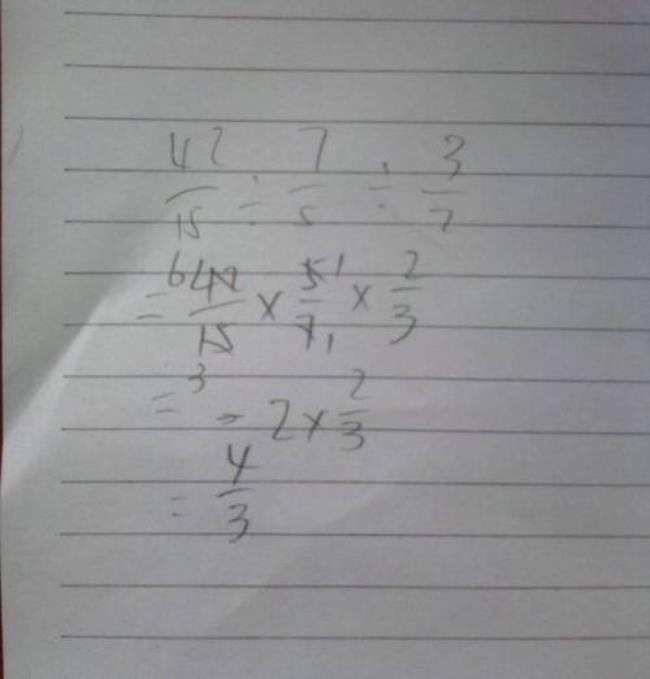 42/15 ÷ 7/5 ÷ 3/2
= 6 42/15 3 × 5 1/7 1 × 2/3
= → 2 × 2/3
= 4/3